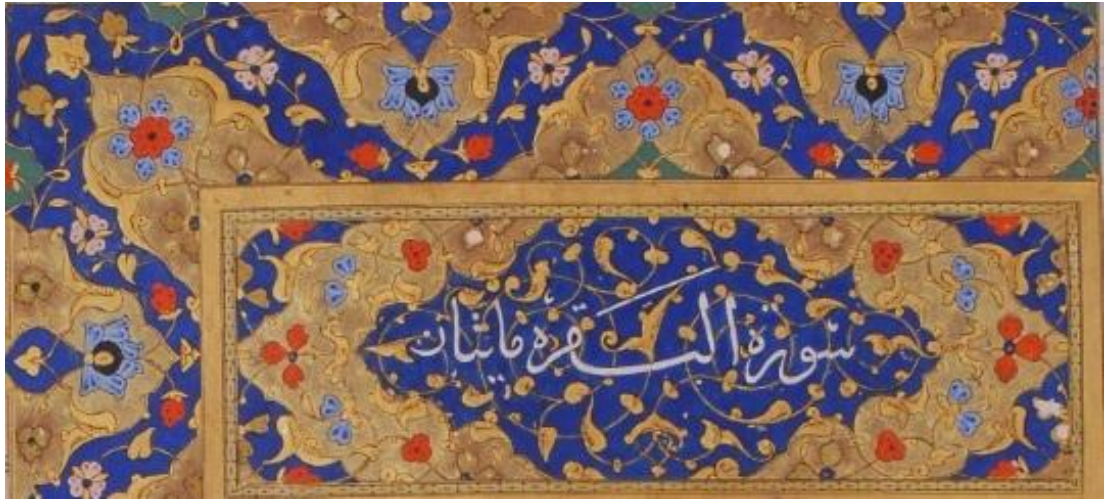 سورة البقره مايتان